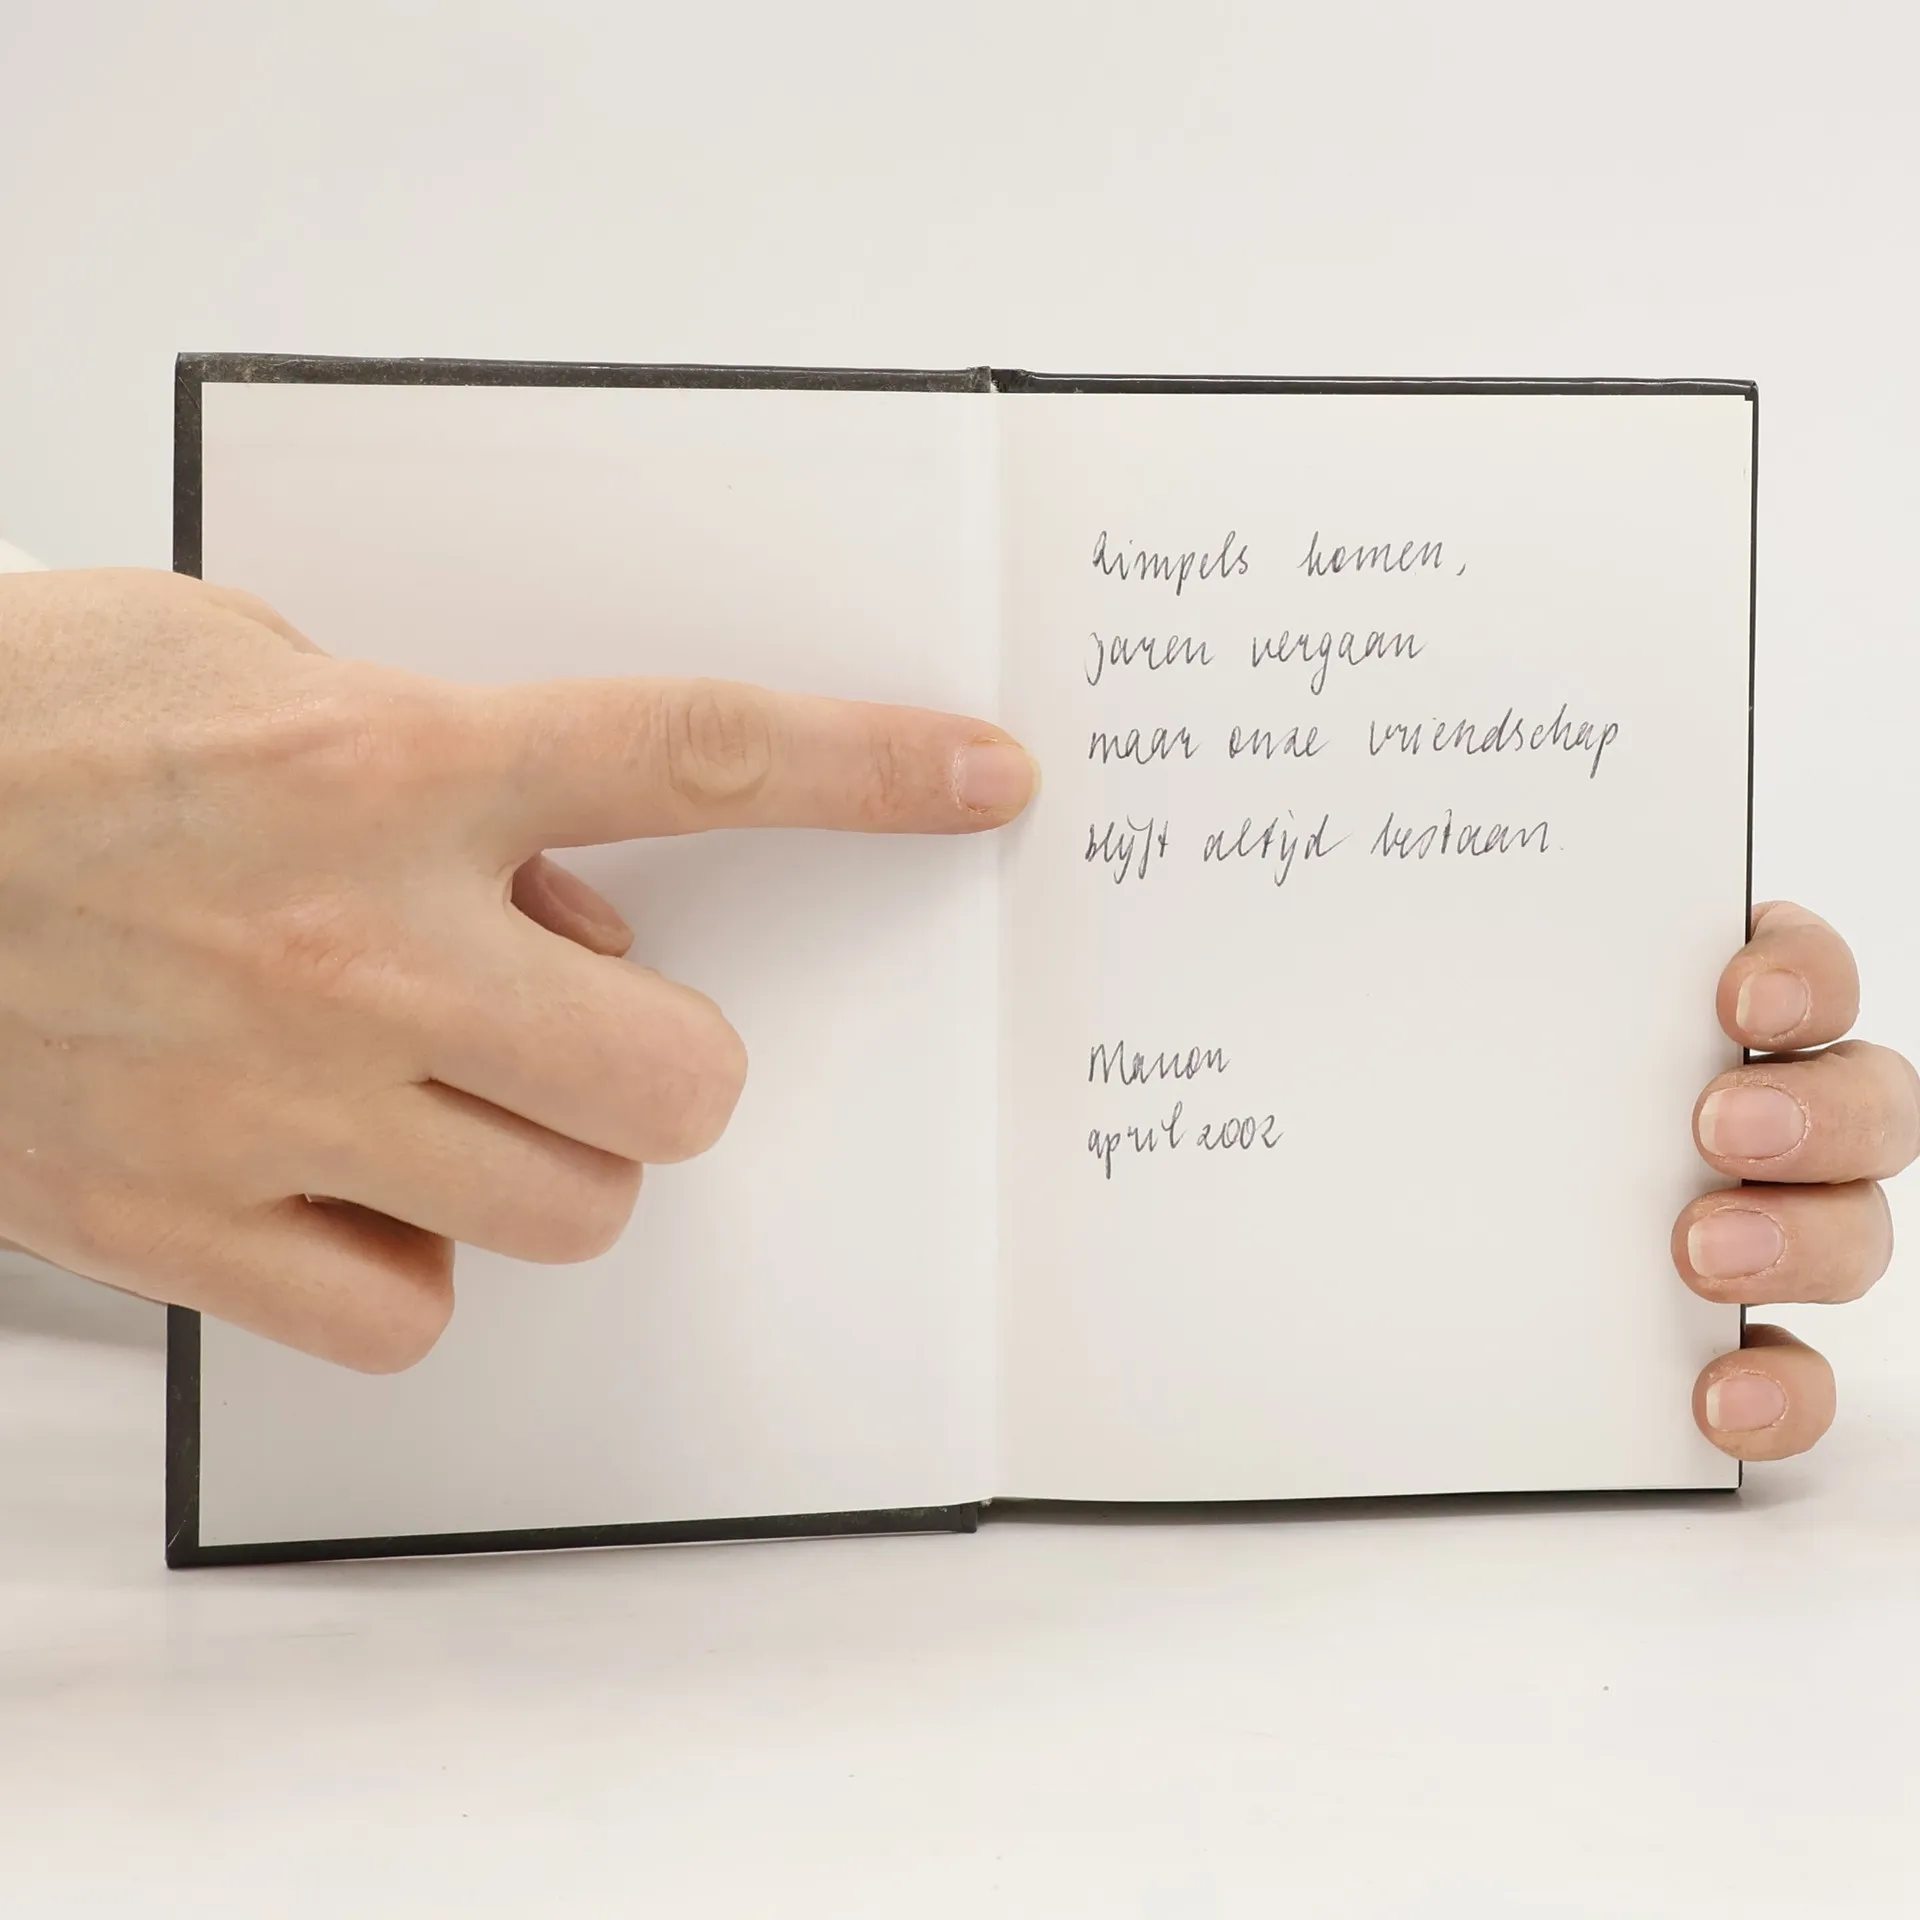 Rimpels komen,
jaren vergaan
maar onze vriendschap
blijft altijd bestaan.
Manon
april 2002